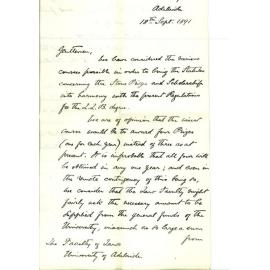 Adelaide
18th Sept. 1891
Gentlemen,
We have considered the various
courses possible in order to bring the Statutes
concerning the Stow Prizes and Scholarship
into harmony with the present Regulations
for the LL.B. degree.
We are of opinion that the wisest
course would be to award four Prizes
(one for each year) instead of three as at
present. It is improbable that all four will
be obtained in any one year; and even in
the remote contingency of this being so,
we consider that the Law Faculty might
fairly ask the necessary amount to be
supplied from the general funds of the
University, inasmuch as so large a sum
from
The Faculty of Laws
University of Adelaide.